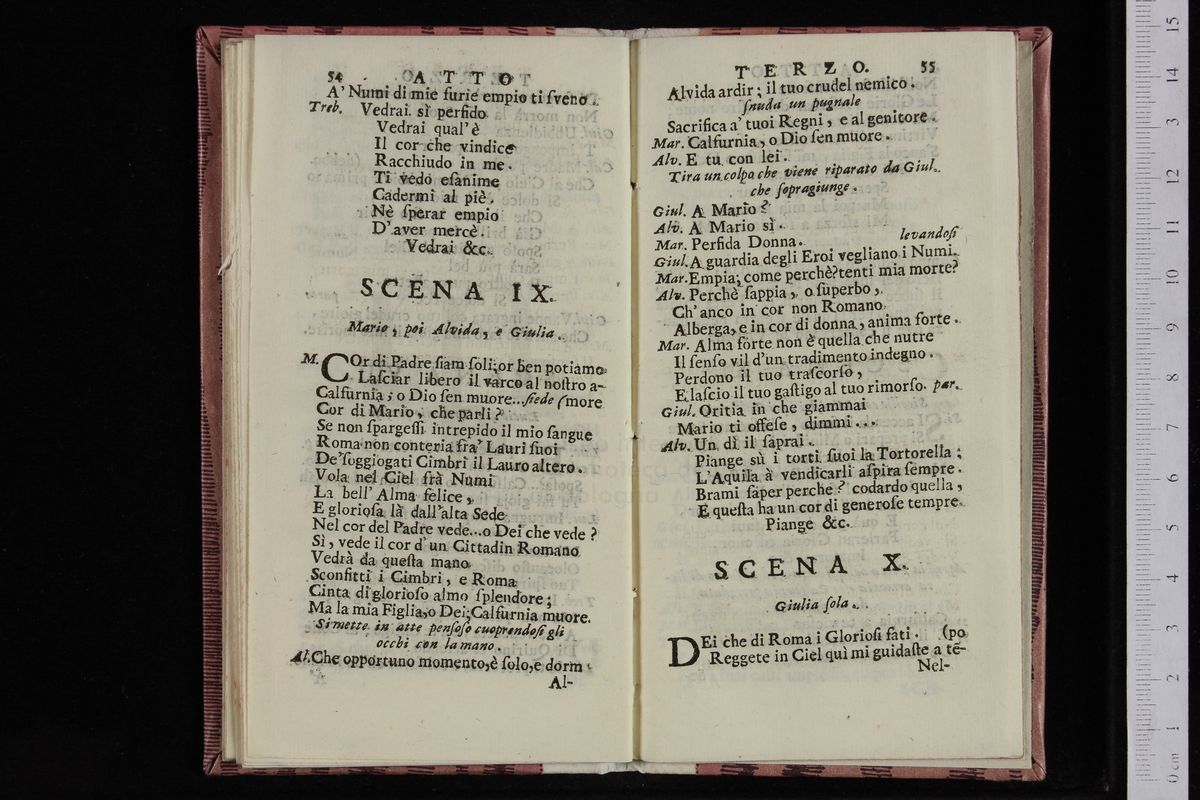 54 ATTO
A' Numi di mie furie empio ti ſveno.
Treb. Vedrai sì perfido
Vedrai qual'è
Il cor che vindice
Racchiudo in me.
Ti vedo eſanime
Cadermi al piè.
Nè ſperar empio
D'aver mercè.
Vedrai &c.
SCENA IX.
Mario, poi Alvida, e Giulia.
M. COr di Padre ſiam ſoli; or ben potiamo
Laſciar libero il varco al noſtro a-
Calfurnia; o Dio ſen muore...ſiede (more
Cor di Mario, che parli?
Se non ſpargeſſi intrepido il mio ſangue
Roma non conteria fra' Lauri ſuoi
De'ſoggiogati Cimbri il Lauro altero.
Vola nel Ciel frà Numi
La bell' Alma felice,
E glorioſa là dall'alta Sede
Nel cor del Padre vede...o Dei che vede?
Sì, vede il cor d'un Cittadin Romano
Vedrà da queſta mano
Sconfitti i Cimbri, e Roma
Cinta di glorioſo almo ſplendore;
Ma la mia Figlia, o Dei; Calfurnia muore.
Si mette in atte penſoſo cuoprendoſi gli
occhi con la mano.
Al. Che opportuno momento, è ſolo, e dorm
Al-
TERZO. 55
Alvida ardir; il tuo crudel nemico.
ſnuda un pugnale
Sacrifica a' tuoi Regni, e al genitore.
Mar. Calfurnia, o Dio ſen muore.
Alv. E tu con lei.
Tira un colpo che viene riparato da Giul.
che ſopragiunge.
Giul. A Mario?
Alv. A Mario sì.
Mar. Perfida Donna. levandoſi
Giul. A guardia degli Eroi vegliano i Numi.
Mar. Empia; come perchè? tenti mia morte?
Alv. Perchè ſappia, o ſuperbo,
Ch' anco in cor non Romano
Alberga, e in cor di donna, anima forte.
Mar. Alma forte non è quella che nutre
Il ſenſo vil d'un tradimento indegno.
Perdono il tuo traſcorſo,
E laſcio il tuo gaſtigo al tuo rimorſo. par.
Giul. Oritia in che giammai
Mario ti offeſe, dimmi...
Alv. Un dì il ſaprai.
Piange sù i torti ſuoi la Tortorella;
L'Aquila à vendicarli aſpira ſempre.
Brami ſaper perche? codardo quella,
E queſta ha un cor di generoſe tempre.
Piange &c.
SCENA X.
Giulia ſola.
DEi che di Roma i Glorioſi fati. (po
Reggete in Ciel quì mi guidaſte a tẽ-
Nel-
15
14
3
12
11
10
9
8
7
6
5
4
3
2
1
0 cm